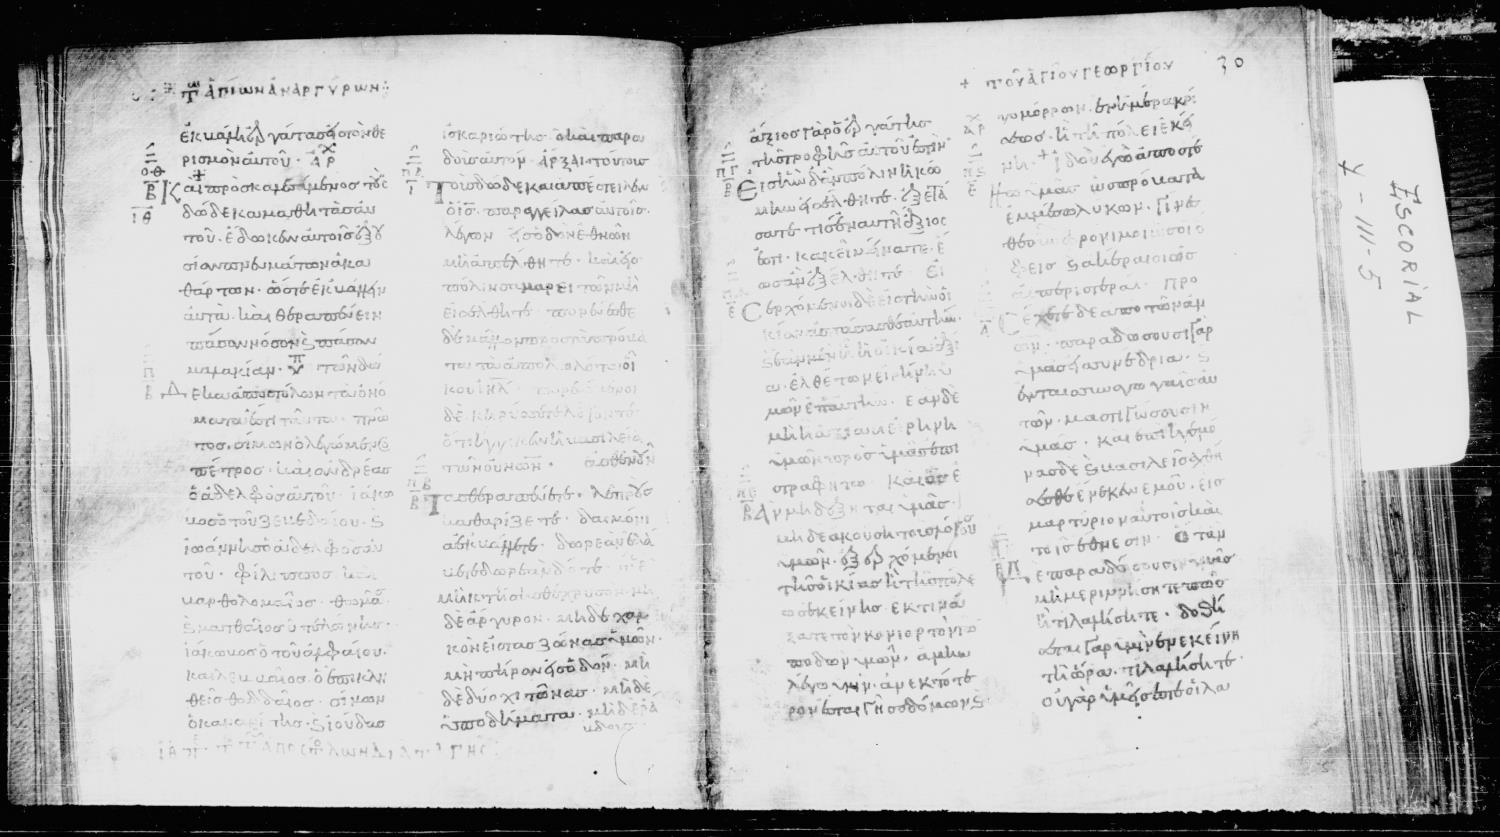 τῶν ἁγίων ἀναργύρων
ἐκβάλῃ ἐργάτας εἰς τὸν θε
ρισμὸν αὐτοῦ· ἀρχ
Καὶ προσκαλεσάμενος τοὺς
δώδεκα μαθητὰς αὐ
τοῦ· ἔδωκεν αὐτοῖς ἐξου
σίαν πνευμάτων ἀκα
θάρτων· ὥστε ἐκβάλλειν
αὐτὰ· καὶ θεραπεύειν
πᾶσαν νόσον καὶ πᾶσαν
μαλακίαν· τῶν δώ
Δεκα ἀποστόλων τὰ ὀνό
ματα ἐστι ταῦτα· πρῶ
τος, σίμων ὁ λεγόμενος
πέτρος· καὶ ἀνδρέας
ὁ ἀδελφὸς αὐτοῦ· ἰάκω
βος ὁ τοῦ ζεβεδαίου· καὶ
ἰωάννης ὁ ἀδελφὸς αὐ
τοῦ· φίλιππος καὶ
βαρθολομαῖος· θωμᾶς
καὶ ματθαῖος ὁ τελώνης·
ἰάκωβος ὁ τοῦ ἀλφαίου·
καὶ λεββαῖος· ὁ ἐπικλη
θεὶς θαδδαῖος· σίμων
ὁ κανανίτης· καὶ ἰούδας
ἰσκαριώτης· ὁ καὶ παρα
δοὺς αὐτόν· ἀρξαι· τούτους
Τοὺς δώδεκα ἀπέστειλεν
ὁ ἰς· παραγγείλας αὐτοῖς·
λέγων εἰς ὁδὸν ἐθνῶν
μὴ ἀπέλθητε· καὶ εἰς
πόλιν σαμαρειτῶν μὴ
εἰσέλθητε· πορεύεσθε
δὲ μᾶλλον πρὸς τὰ πρόβα
τα τὰ ἀπολωλότα οἴ
κου ἰηλ· πορευόμενοι
δὲ κηρύσσετε λέγοντες
ὅτι ἤγγικεν ἡ βασιλεία
τῶν οὐνῶν· ἀσθενοῦν
Τας θεραπεύετε· λεπροὺς
καθαρίζετε· δαιμόνι
α ἐκβάλλετε· δωρεὰν ἐλά
βετε δωρεὰν δότε·
μὴ κτήσησθε χρυσὸν μη
δὲ ἄργυρον· μηδὲ χαλ
κὸν εἰς τὰς ζώνας ὑμῶν·
μὴ πήραν εἰς ὁδόν· μη
δὲ δύο χιτῶνας· μηδὲ
ὑποδήματα· μηδὲ ῥά
βδους
+ τοῦ ἁγίου γεωργίου
30
ἄξιος γὰρ ὁ ἐργάτης
τῆς τροφῆς αὐτοῦ ἐστίν
Εἰς ἣν δ' ἂν πόλιν ἢ κώ
μην εἰσέλθητε· ἐξετά
σατε τίς ἐν αὐτῇ ἄξιός
ἐστι· κἀκεῖ μείνατε· ἕ
ως ἂν ἐξέλθητε· εἰ
Σερχόμενοι δὲ εἰς τὴν οἰ
κίαν ἀσπάσασθε αὐτήν·
καὶ ἐὰν μὲν ᾖ ἡ οἰκία ἀξί
α· ἐλθέτω ἡ εἰρήνη ὑ
μῶν ἐπ' αὐτήν· ἐὰν δὲ
μὴ ᾖ ἀξία ἡ εἰρήνη
ὑμῶν πρὸς ὑμᾶς ἐπι
στραφήτω· καὶ ὃς ἐ
Αν μὴ δέξηται ὑμᾶς·
μηδὲ ἀκούσῃ τοὺς λόγους
ὑμῶν· ἐξερχόμενοι
τῆς οἰκίας ἢ τῆς πόλε
ως ἐκείνης· ἐκτινά
ξατε τὸν κονιορτὸν
ποδῶν ὑμῶν· ἀμὴν
λέγω ὑμῖν· ἀνεκτότε
ρον ἔσται γῇ σοδόμων καὶ
γομόρρων· ἐν ἡμέρᾳ κρί
σεως· ἢ τῇ πόλει ἐκεί
νῃ· + ἰδοὺ ἐγὼ ἀποστέ
λλω ὑμᾶς ὡς πρόβατα
ἐν μέσῳ λύκων· γίνε
σθε οὖν φρόνιμοι ὡς οἱ ὄ
φεις καὶ ἀκέραιοι ὡς
αἱ περιστεραί· προ
Σέχετε δὲ ἀπὸ τῶν ἀν
ων· παραδώσουσι γὰρ
ὑμᾶς εἰς συνέδρια· καὶ
ἐν ταῖς συναγωγαῖς αὐ
τῶν· μαστιγώσουσιν
ὑμᾶς· καὶ ἐπὶ ἡγεμό
νας δὲ καὶ βασιλεῖς ἀχθή
σεσθε ἕνεκεν ἐμοῦ· εἰς
μαρτύριον αὐτοῖς καὶ
τοῖς ἔθνεσιν· ὅταν
Δὲ παραδώσουσιν ὑμᾶς
μὴ μεριμνήσητε πῶς
ἢ τί λαλήσητε· δοθή
σεται γὰρ ὑμῖν ἐν ἐκείνῃ
τῇ ὥρᾳ· τί λαλήσετε·
οὐ γὰρ ὑμεῖς ἐστὲ οἱ λα
ESCORIAL
Ψ-III-5